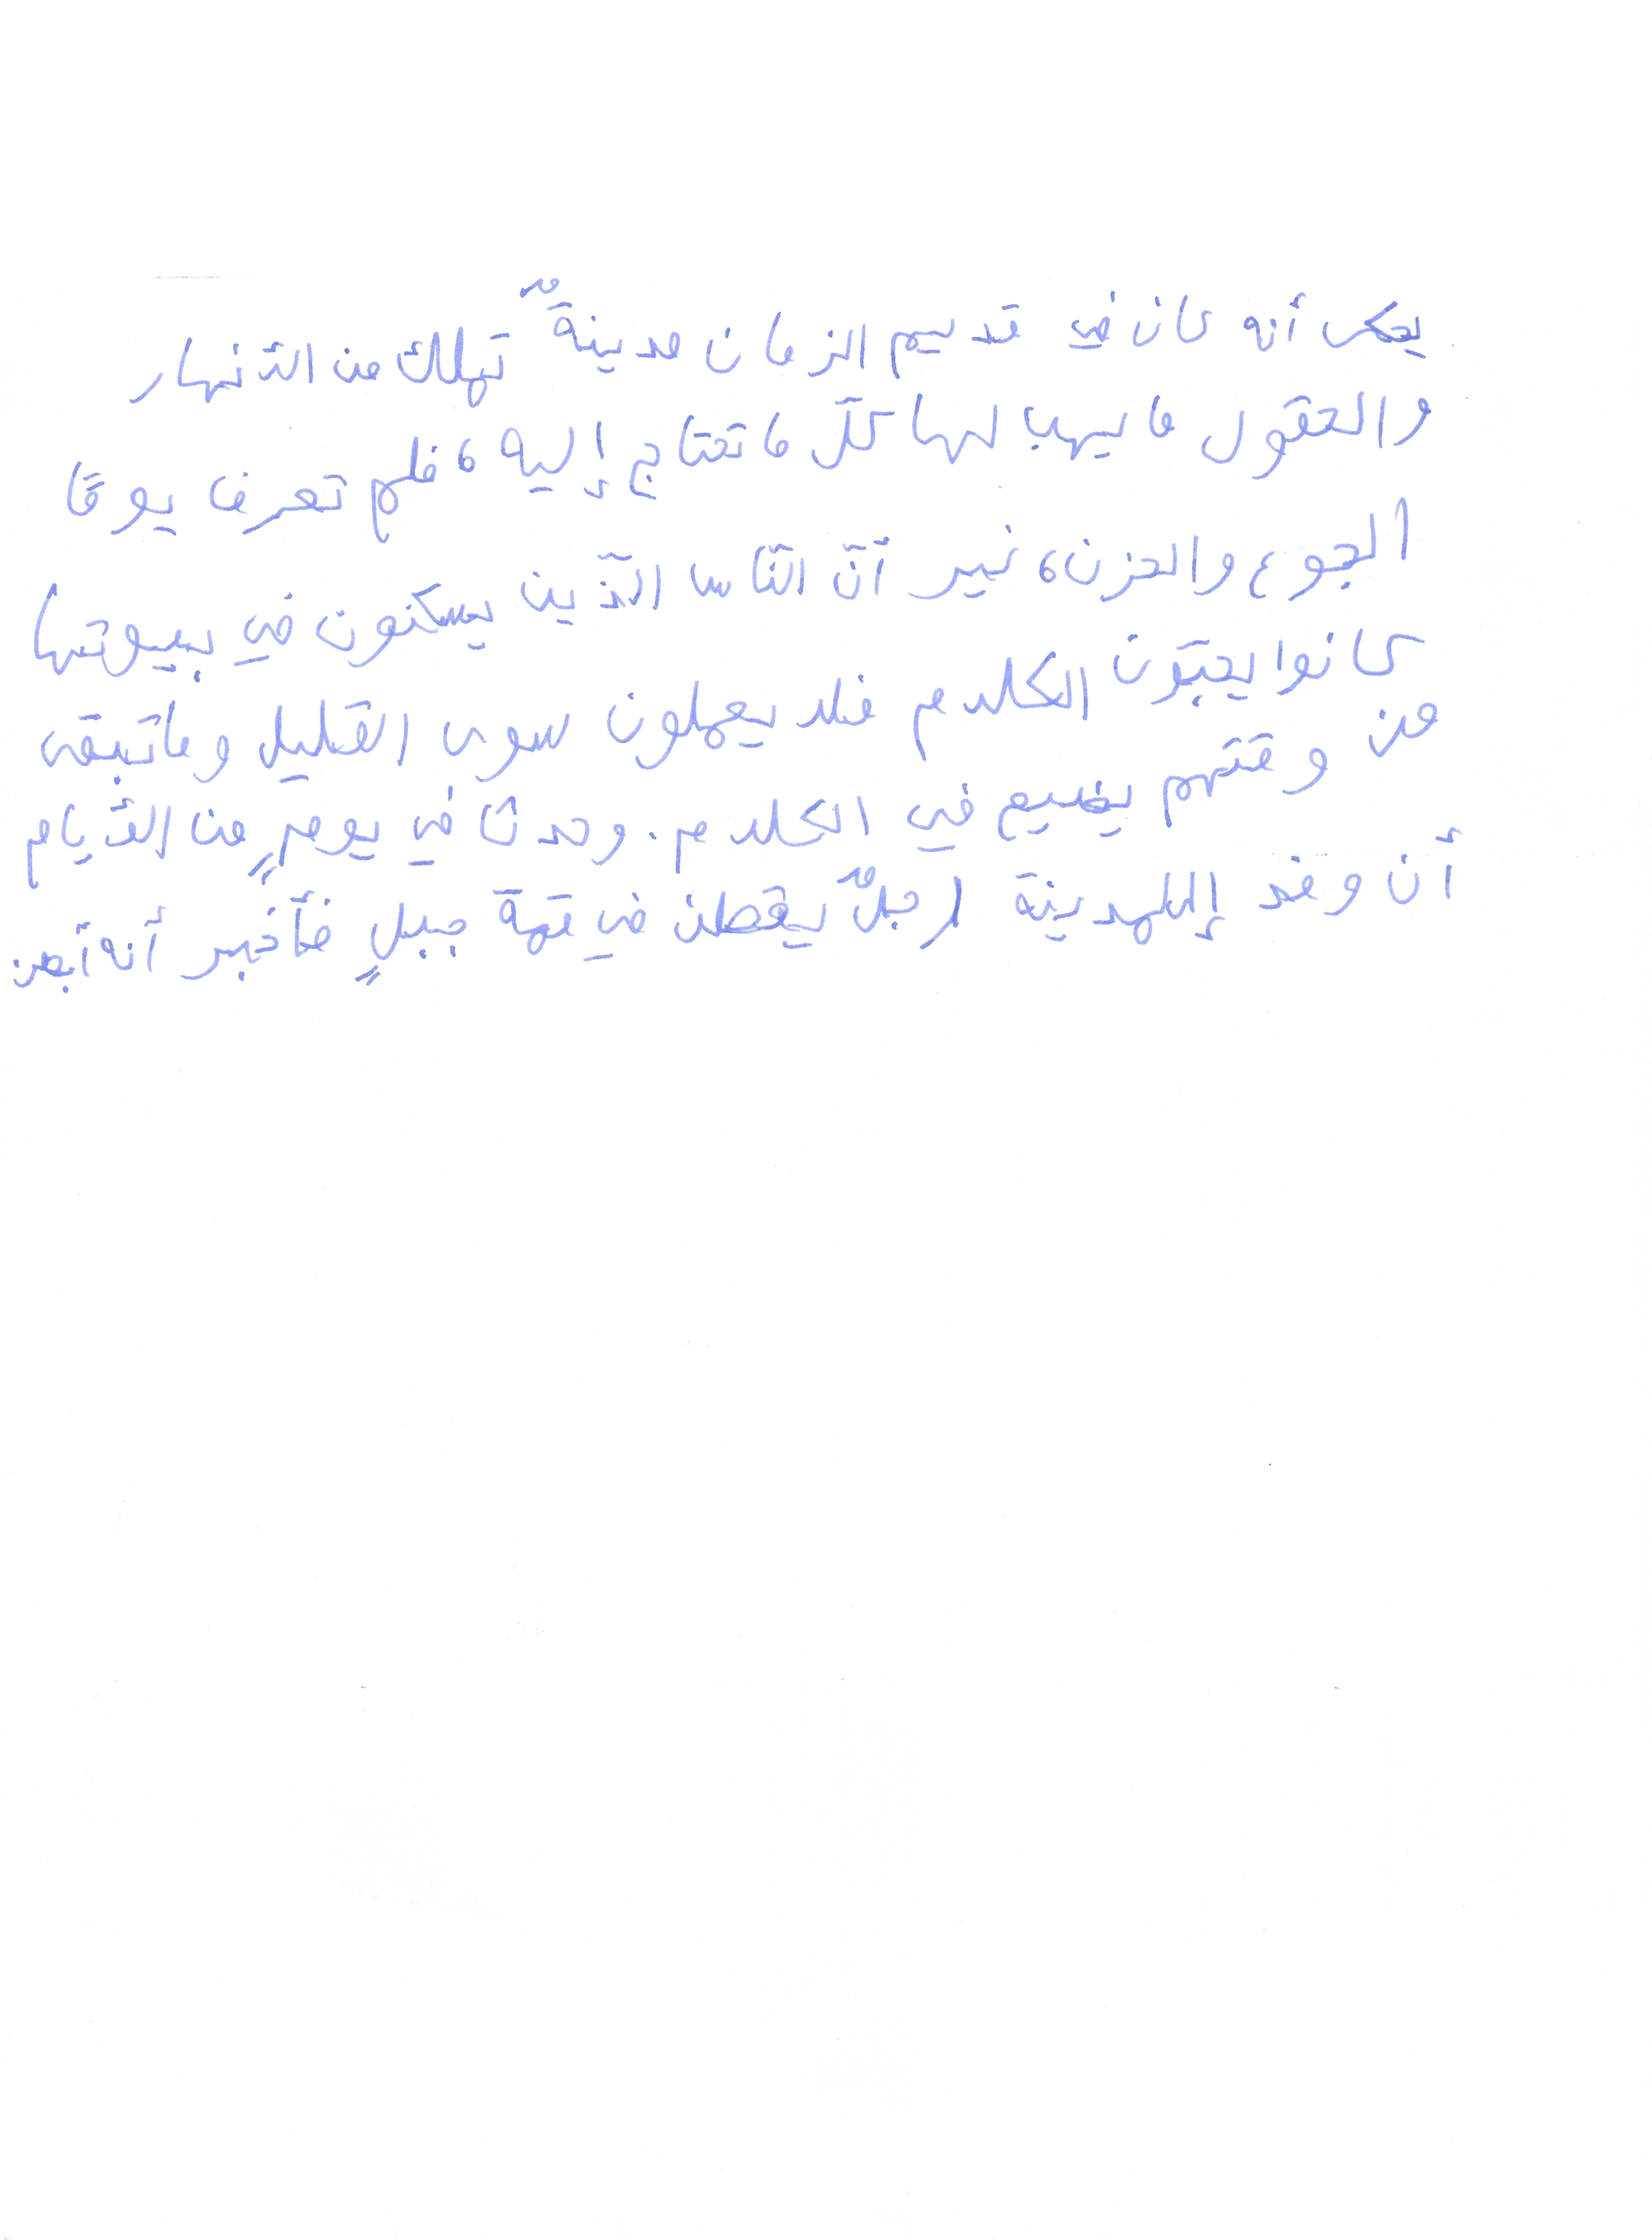 يحكى أنه كان في قديم الزمان مدينةٌ تملك من الأنهار
والحقول ما يهب لها كلّ ما تحتاج إليه، فلم تعرف يومًا
الجوع والحزن، غير أنّ النّاس الّذين يسكنون في بيوتها
كانوا يحبّون الكلام فلا يعملون سوى القليل وما تبقى
من وقتهم يضيع في الكلام. وحدث في يومٍ من الأيام
أن وفد إلى المدينة رجلٌ يقطن في قمة جبلٍ فأخبر أنه